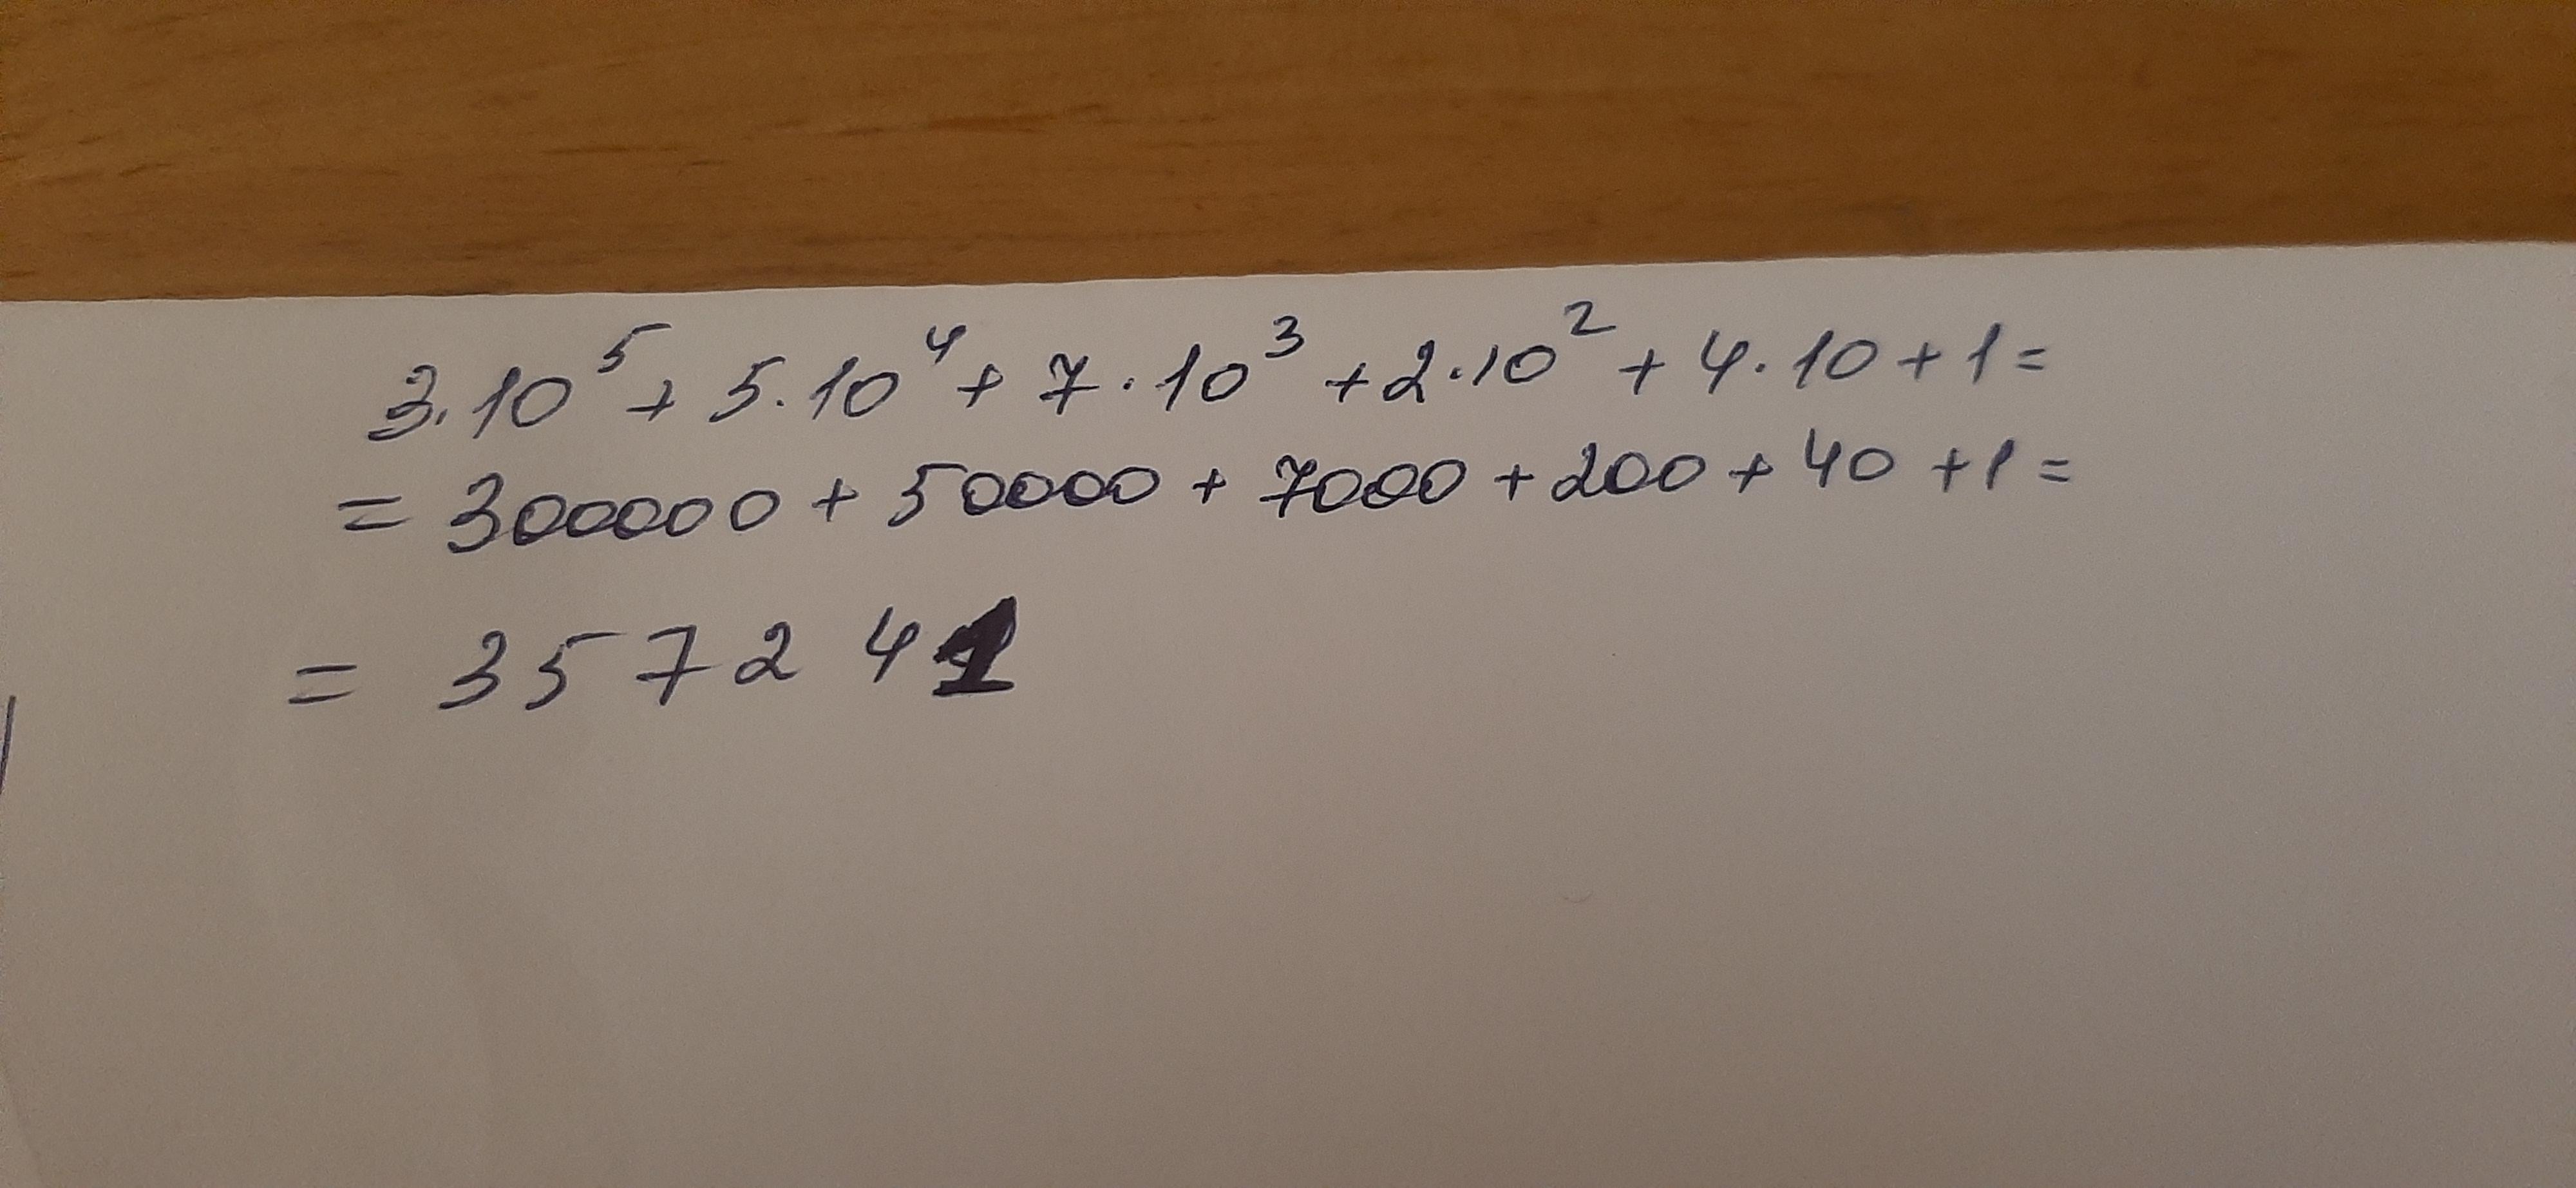 3·10⁵+5·10⁴+7·10³+2·10²+4·10+1=
=300000+50000+7000+200+40+1=
=357241